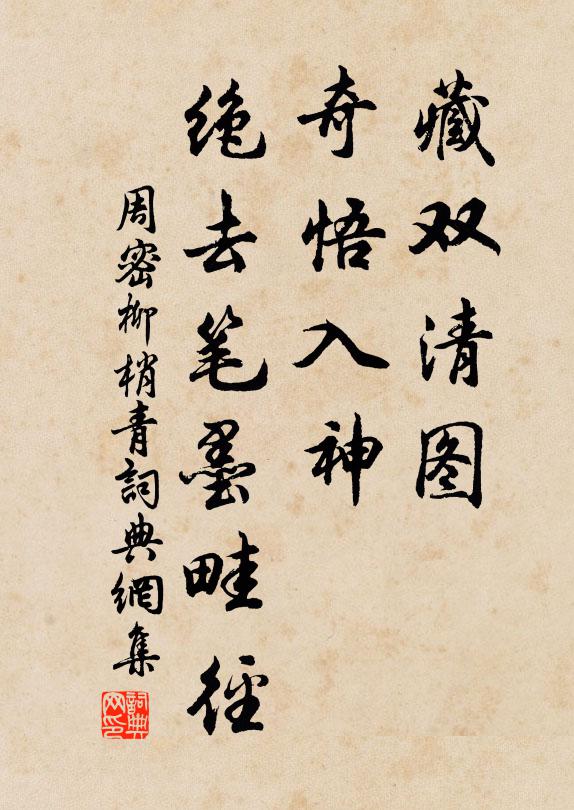 藏双清图
奇悟入神
绝去笔墨畦径
周密柳梢青詞典網集
詞典网印